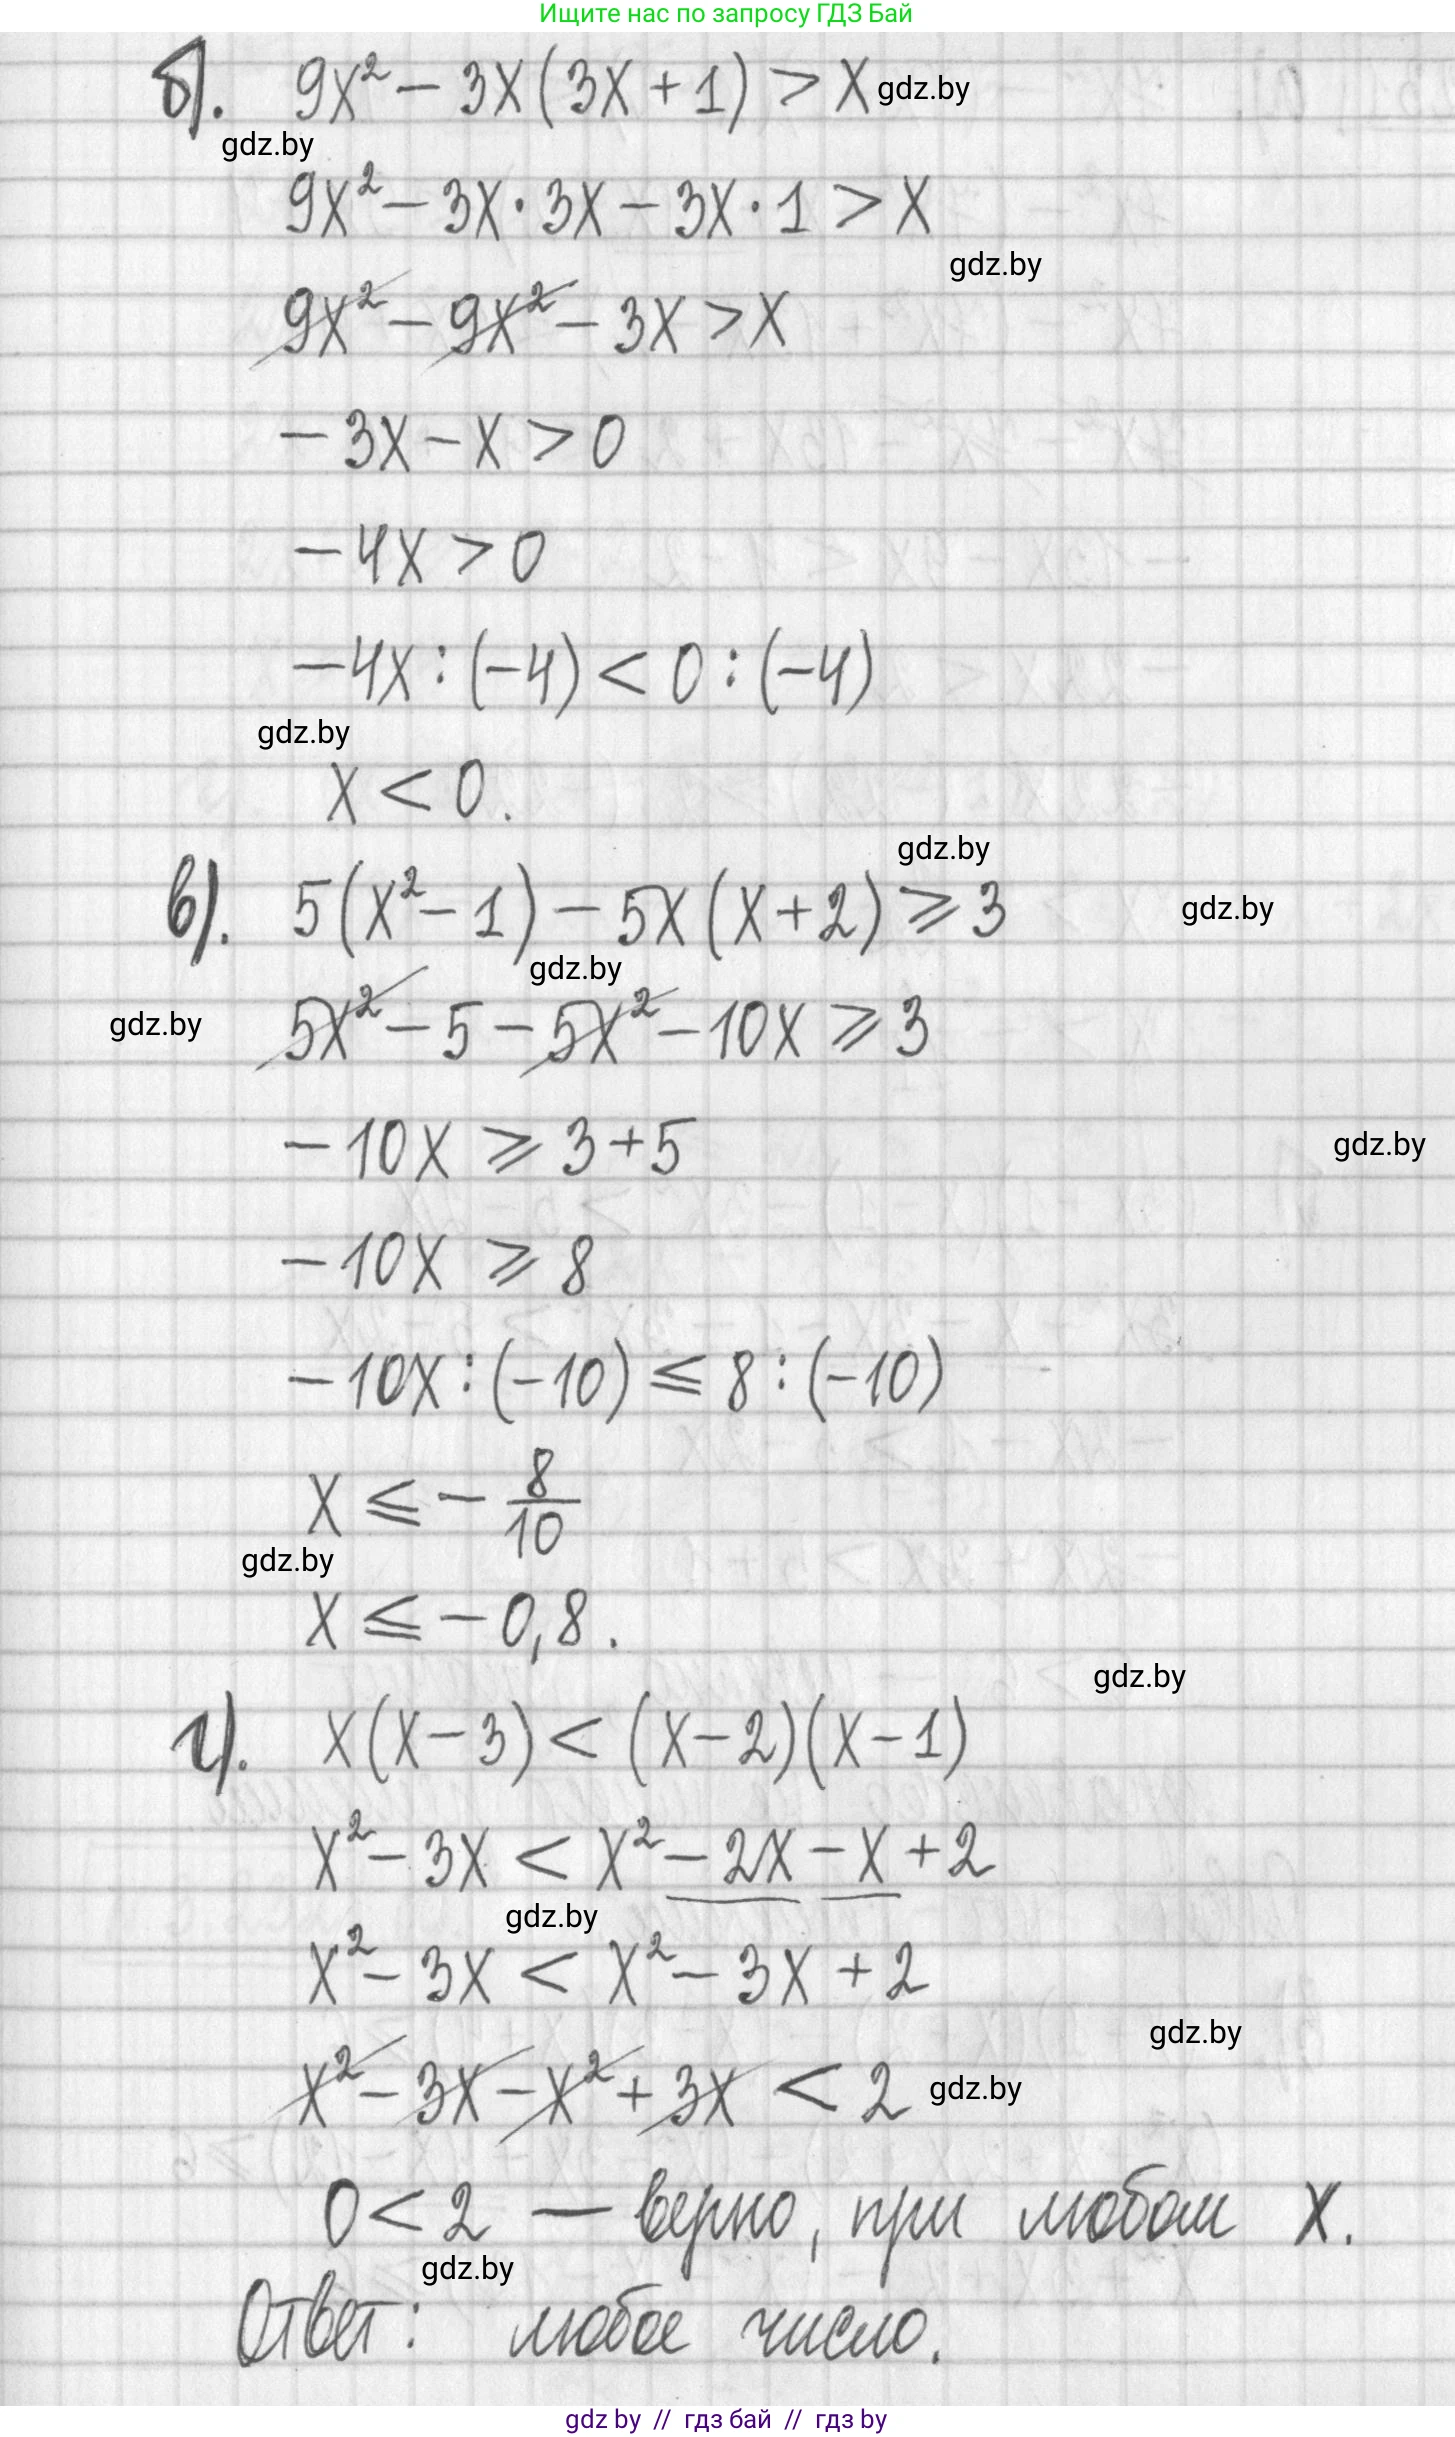 Ищите нас по запросу ГДЗ Бай
б). 9x² - 3x(3x + 1) > x gdz.by
gdz.by
9x² - 3x · 3x - 3x · 1 > x
gdz.by
9x² - 9x² - 3x > x
- 3x - x > 0
- 4x > 0
- 4x : (-4) < 0 : (-4)
gdz.by
x < 0.
gdz.by
в). 5(x² - 1) - 5x(x + 2) ⩾ 3 gdz.by
gdz.by
gdz.by 5x² - 5 - 5x² - 10x ⩾ 3
- 10x ⩾ 3 + 5 gdz.by
- 10x ⩾ 8
- 10x : (-10) ⩽ 8 : (-10)
x ⩽ - 8/10
gdz.by
x ⩽ - 0,8.
gdz.by
г). x(x - 3) < (x - 2)(x - 1)
x² - 3x < x² - 2x - x + 2
gdz.by
x² - 3x < x² - 3x + 2
gdz.by
x² - 3x - x² + 3x < 2 gdz.by
0 < 2 — верно, при любом x.
gdz.by
Ответ: любое число.
gdz by // гдз бай // гдз by